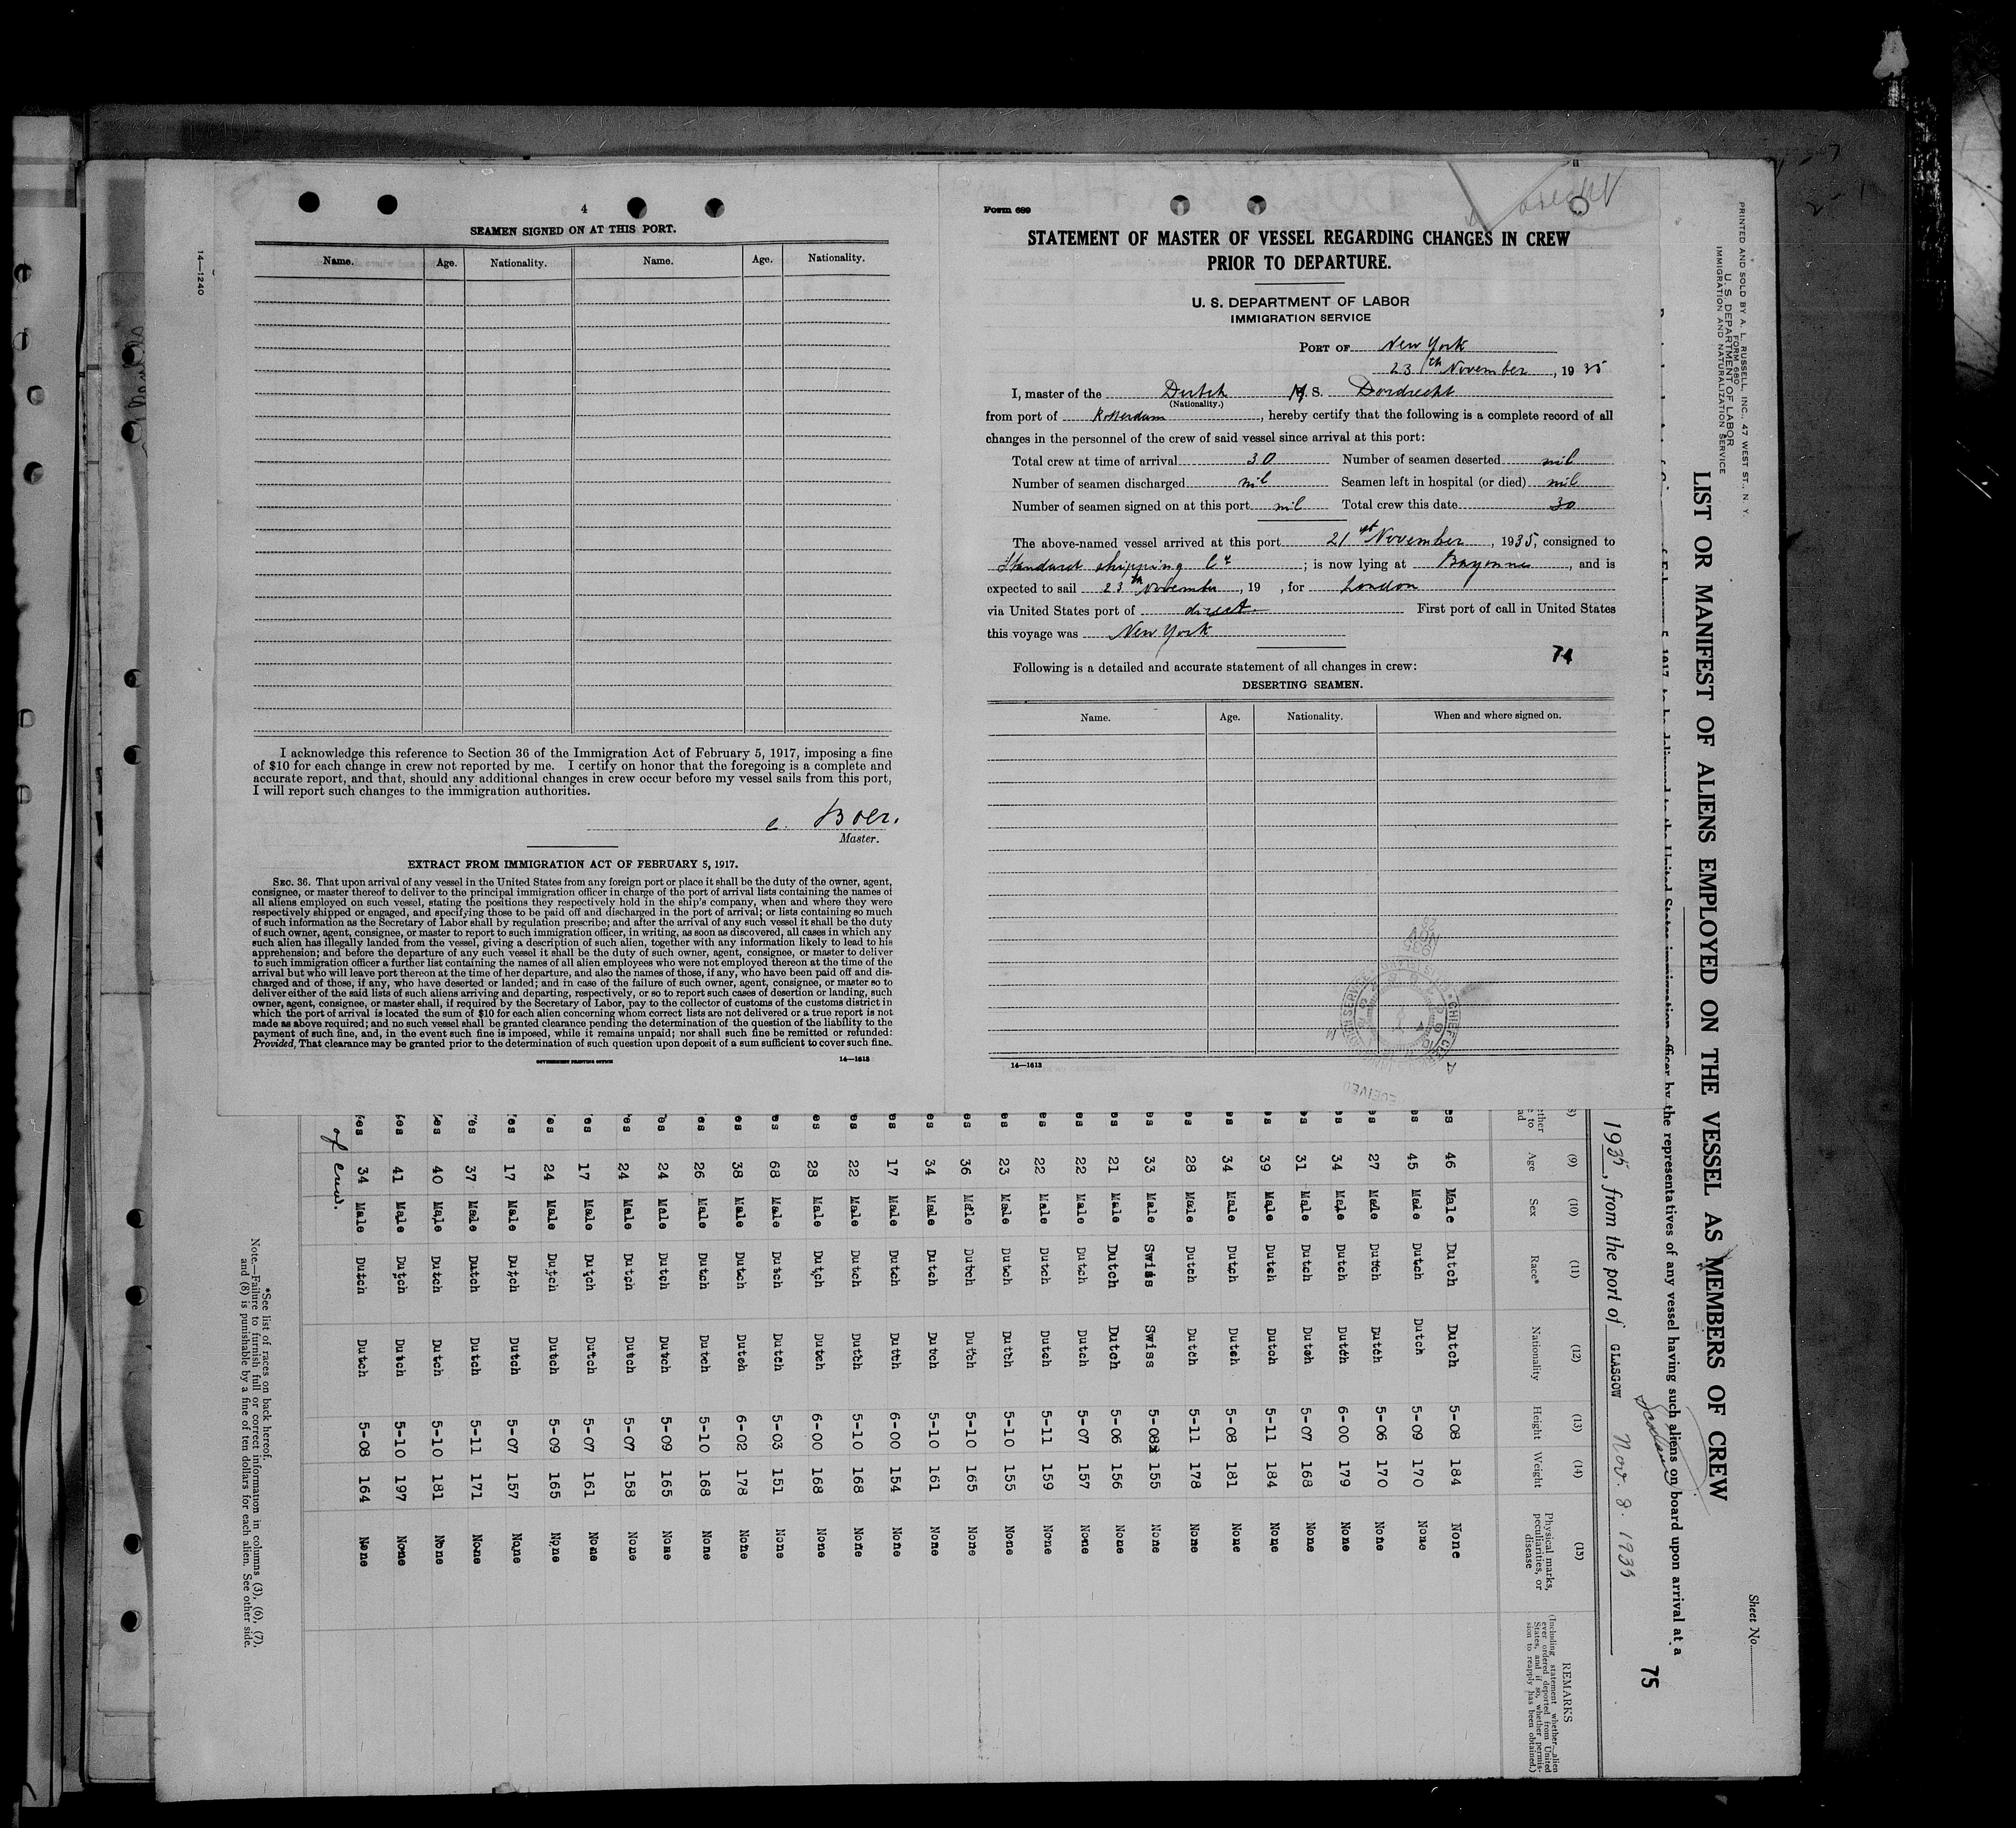 14—1240
4
SEAMEN SIGNED ON AT THIS PORT.
Name. Age. Nationality. Name. Age. Nationality.
I acknowledge this reference to Section 36 of the Immigration Act of February 5, 1917, imposing a fine
of $10 for each change in crew not reported by me. I certify on honor that the foregoing is a complete and
accurate report, and that, should any additional changes in crew occur before my vessel sails from this port,
I will report such changes to the immigration authorities.
C. Boer.
Master.
EXTRACT FROM IMMIGRATION ACT OF FEBRUARY 5, 1917.
SEC. 36. That upon arrival of any vessel in the United States from any foreign port or place it shall be the duty of the owner, agent,
consignee, or master thereof to deliver to the principal immigration officer in charge of the port of arrival lists containing the names of
all aliens employed on such vessel, stating the positions they respectively hold in the ship's company, when and where they were
respectively shipped or engaged, and specifying those to be paid off and discharged in the port of arrival; or lists containing so much
of such information as the Secretary of Labor shall by regulation prescribe; and after the arrival of any such vessel it shall be the duty
of such owner, agent, consignee, or master to report to such immigration officer, in writing, as soon as discovered, all cases in which any
such alien has illegally landed from the vessel, giving a description of such alien, together with any information likely to lead to his
apprehension; and before the departure of any such vessel it shall be the duty of such owner, agent, consignee, or master to deliver
to such immigration officer a further list containing the names of all alien employees who were not employed thereon at the time of the
arrival but who will leave port thereon at the time of her departure, and also the names of those, if any, who have been paid off and dis-
charged and of those, if any, who have deserted or landed; and in case of the failure of such owner, agent, consignee, or master so to
deliver either of the said lists of such aliens arriving and departing, respectively, or so to report such cases of desertion or landing, such
owner, agent, consignee, or master shall, if required by the Secretary of Labor, pay to the collector of customs of the customs district in
which the port of arrival is located the sum of $10 for each alien concerning whom correct lists are not delivered or a true report is not
made as above required; and no such vessel shall be granted clearance pending the determination of the question of the liability to the
payment of such fine, and, in the event such fine is imposed, while it remains unpaid; nor shall such fine be remitted or refunded:
Provided, That clearance may be granted prior to the determination of such question upon deposit of a sum sufficient to cover such fine.
GOVERNMENT PRINTING OFFICE
14—1613
Form 689
STATEMENT OF MASTER OF VESSEL REGARDING CHANGES IN CREW
PRIOR TO DEPARTURE.
U. S. DEPARTMENT OF LABOR
IMMIGRATION SERVICE
PORT OF New York
23th November, 1935
I, master of the Dutch M. S. Dordrecht
(Nationality.)
from port of Rotterdam, hereby certify that the following is a complete record of all
changes in the personnel of the crew of said vessel since arrival at this port:
Total crew at time of arrival 30 Number of seamen deserted nil
Number of seamen discharged nil Seamen left in hospital (or died) nil
Number of seamen signed on at this port nil Total crew this date 30
The above-named vessel arrived at this port 21st November, 1935, consigned to
Standard shipping Co; is now lying at Bayonne, and is
expected to sail 23th November, 19 , for London
via United States port of direct First port of call in United States
this voyage was New York
74
Following is a detailed and accurate statement of all changes in crew:
DESERTING SEAMEN.
Name. Age. Nationality. When and where signed on.
14—1613
PRINTED AND SOLD BY A. L. RUSSELL, INC., 47 WEST ST., N. Y.
FORM 680
U. S. DEPARTMENT OF LABOR
IMMIGRATION AND NATURALIZATION SERVICE
Sheet No.
LIST OR MANIFEST OF ALIENS EMPLOYED ON THE VESSEL AS MEMBERS OF CREW
officer by the representatives of any vessel having such aliens on board upon arrival at a
75
1935, from the port of GLASGOW Scotland Nov. 8. 1935
(9) (10) (11) (12) (13) (14) (15)
Age Sex Race* Nationality Height Weight Physical marks, peculiarities, or disease
REMARKS
(Including statement whether alien
ever ordered deported from United
States, and if so, whether permis-
sion to reapply has been obtained.)
46 Male Dutch Dutch 5-08 184 None
45 Male Dutch Dutch 5-09 170 None
27 Male Dutch Dutch 5-06 170 None
34 Male Dutch Dutch 6-00 179 None
31 Male Dutch Dutch 5-07 168 None
39 Male Dutch Dutch 5-11 184 None
34 Male Dutch Dutch 5-08 181 None
28 Male Dutch Dutch 5-11 178 None
33 Male Swiss Swiss 5-08 155 None
21 Male Dutch Dutch 5-06 156 None
22 Male Dutch Dutch 5-07 157 None
22 Male Dutch Dutch 5-11 159 None
23 Male Dutch Dutch 5-10 155 None
36 Male Dutch Dutch 5-10 165 None
34 Male Dutch Dutch 5-10 161 None
17 Male Dutch Dutch 6-00 154 None
22 Male Dutch Dutch 5-10 168 None
28 Male Dutch Dutch 6-00 168 None
68 Male Dutch Dutch 5-03 151 None
38 Male Dutch Dutch 6-02 178 None
26 Male Dutch Dutch 5-10 168 None
24 Male Dutch Dutch 5-09 165 None
24 Male Dutch Dutch 5-07 158 None
17 Male Dutch Dutch 5-07 161 None
24 Male Dutch Dutch 5-09 165 None
17 Male Dutch Dutch 5-07 157 None
37 Male Dutch Dutch 5-11 171 None
40 Male Dutch Dutch 5-10 181 None
41 Male Dutch Dutch 5-10 197 None
34 Male Dutch Dutch 5-08 164 None
of crew.
*See list of races on back hereof.
Note.—Failure to furnish full or correct information in columns (3), (6), (7),
and (8) is punishable by a fine of ten dollars for each alien. See other side.